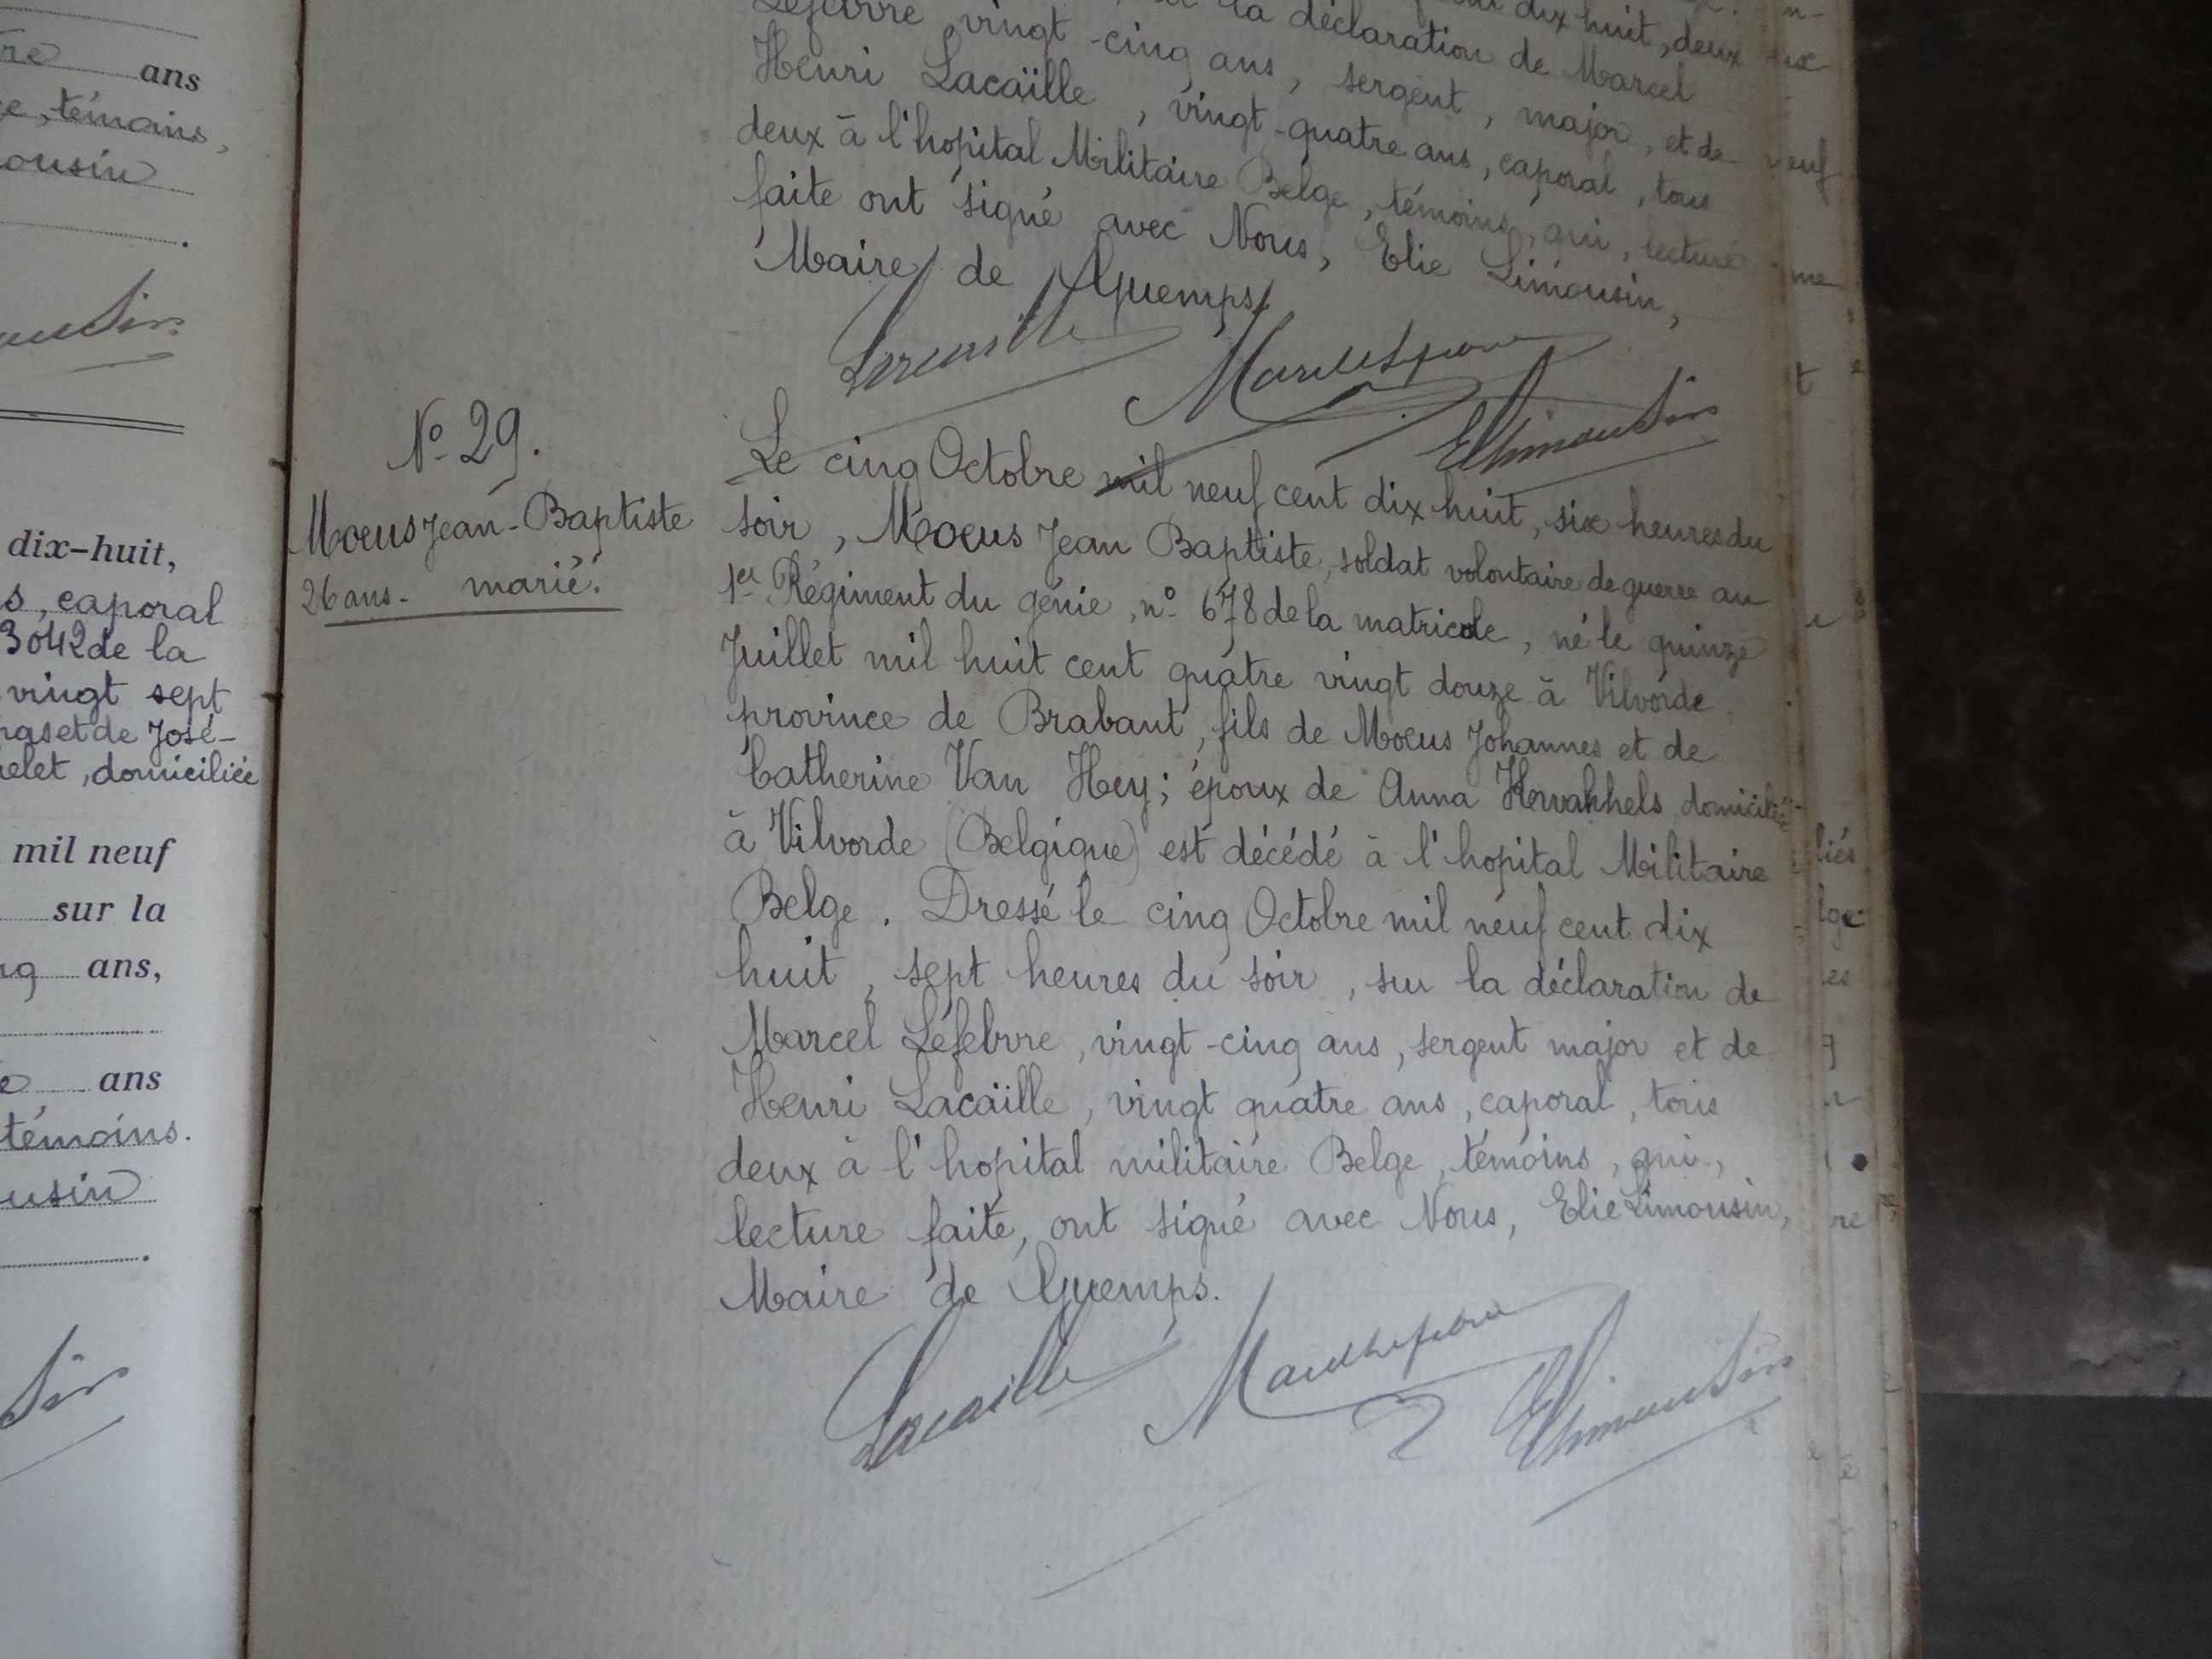 ans
témoins,
ousin
dix-huit,
s, caporal
3042 de la
vingt sept
et de José-
elet, domiciliée
mil neuf
sur la
ans,
ans
témoins.
usin
dix huit, deux
Lefebvre vingt-cinq ans, sergent, major, et de
la déclaration de Marcel
Henri Lacaïlle, vingt-quatre ans, caporal, tous
deux à l'hopital Militaire Belge, témoins, qui, lecture
faite ont signé avec Nous, Elie Limousin,
Maire de Guemps.
Lacaille Marcel Lefebvre
E Limousin
No 29.
Moeus Jean-Baptiste
26 ans - marié.
Le cinq Octobre mil neuf cent dix huit, six heures du
soir, Moeus Jean Baptiste, soldat volontaire de guerre au
1er Régiment du génie, no 678 de la matricule, né le quinze
Juillet mil huit cent quatre vingt douze à Vilvorde
province de Brabant, fils de Moeus Johannes et de
Catherine Van Hey; époux de Anna domiciliée
à Vilvorde (Belgique) est décédé à l'hopital Militaire
Belge. Dressé le cinq Octobre mil neuf cent dix
huit, sept heures du soir, sur la déclaration de
Marcel Léfebvre, vingt-cinq ans, sergent major et de
Henri Lacaïlle, vingt quatre ans, caporal, tous
deux à l'hopital militaire Belge, témoins, qui,
lecture faite, ont signé avec Nous, Elie Limousin,
Maire de Guemps.
Lacaille Marcel Lefebvre E Limousin